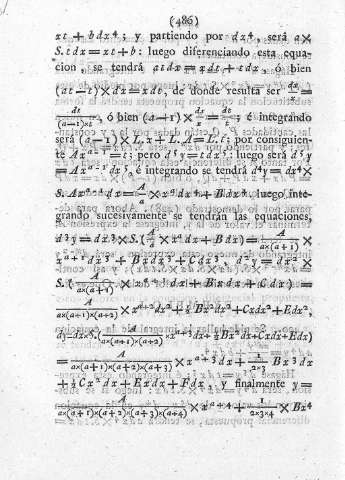 (486)
xt + bdx⁴; y partiendo por dx⁴, será a×
S.tdx = xt + b: luego diferenciando esta equa-
cion, se tendrá atdx = xdt + tdx, ó bien
(at−t)×dx = xdt, de donde resulta ser dx/x =
dt/((a−1)×t), ó bien (a−1)×dx/x = dt/t; é integrando
será (a−1)×L.x + L.A = L.t; por consiguien-
te Ax^(a−1) = t; pero d⁵y = tdx⁵; luego será d⁵y
= Ax^(a−1)dx⁵, é integrando se tendrá d⁴y = dx⁴×
S.Ax^(a−1)dx = A/a × x^a dx⁴ + Bdx⁴, luego inte-
grando sucesivamente se tendrán las equaciones,
d³y = dx³×S.(A/a × x^a dx + Bdx) = A/(a×(a+1)) ×
x^(a+1)dx³ + Bxdx³ + Cdx³, d²y = dx²×
S.(A/(a×(a+1)) × x^(a+1)dx + Bxdx + Cdx) =
A/(a×(a+1)×(a+2)) × x^(a+2)dx² + ½Bx²dx² + Cxdx² + Edx²,
dy = dx×S.(A/(a×(a+1)×(a+2)) × x^(a+2)dx + ½Bx²dx + Cxdx + Edx)
= A/(a×(a+1)×(a+2)×(a+3)) × x^(a+3)dx + 1/(2×3) Bx³dx
+ ½Cx²dx + Exdx + Fdx, y finalmente y =
A/(a×(a+1)×(a+2)×(a+3)×(a+4)) × x^(a+4) + 1/(2×3×4) × Bx⁴